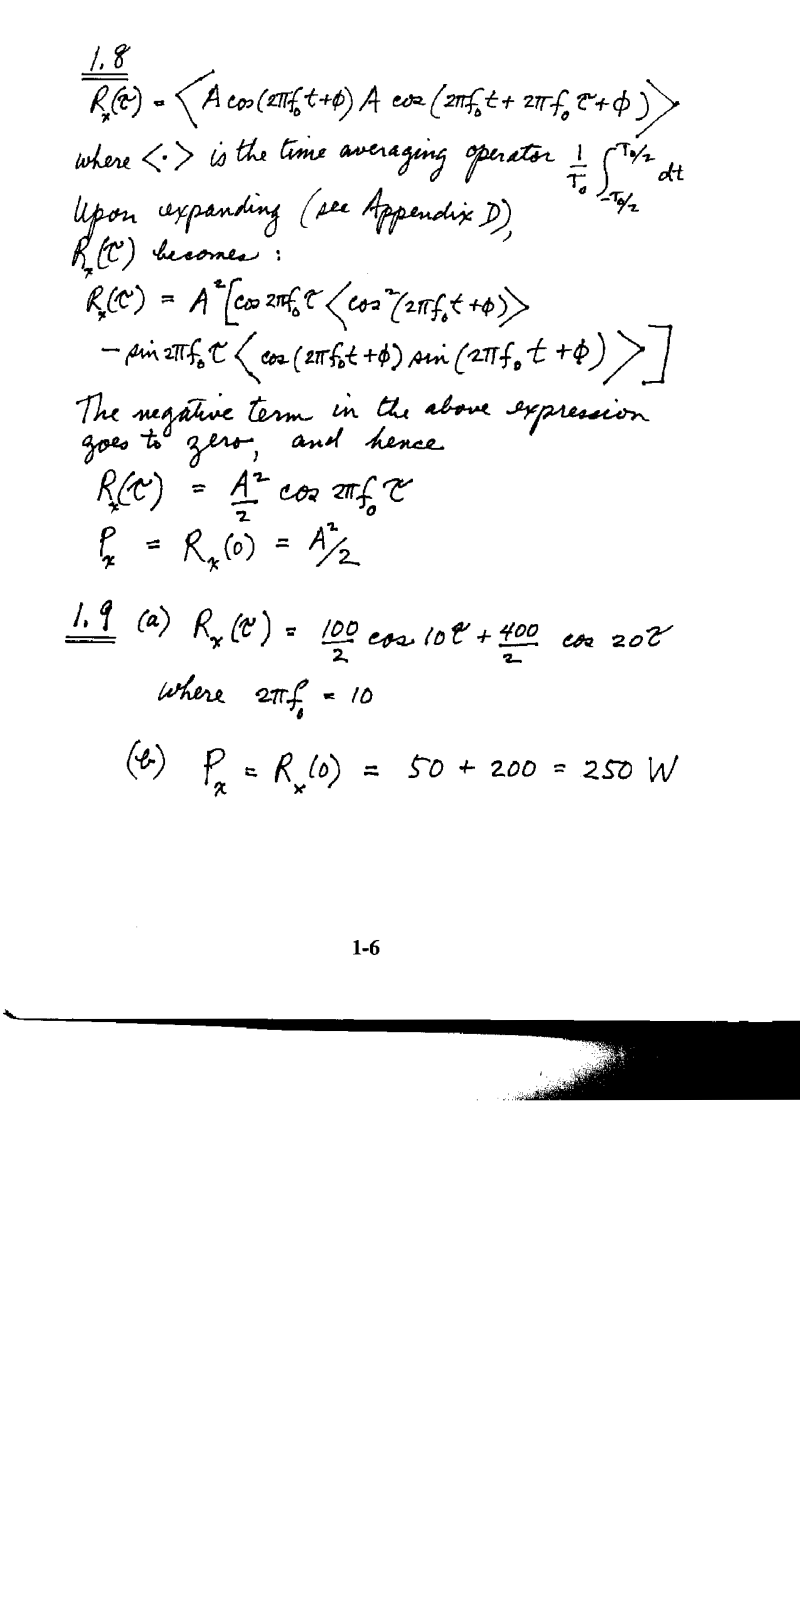 1.8
Rₓ(τ) = < A cos(2πf₀t+φ) A cos(2πf₀t + 2πf₀τ+φ) >
where <·> is the time averaging operator 1/T₀ ∫_{-T₀/2}^{T₀/2} dt
Upon expanding (see Appendix D),
Rₓ(τ) becomes :
Rₓ(τ) = A²[cos 2πf₀τ <cos²(2πf₀t+φ)>
- sin 2πf₀τ < cos(2πf₀t+φ) sin(2πf₀t+φ) >]
The negative term in the above expression
goes to zero, and hence
Rₓ(τ) = A²/2 cos 2πf₀τ
Pₓ = Rₓ(0) = A²/2
1.9 (a) Rₓ(τ) = 100/2 cos 10τ + 400/2 cos 20τ
where 2πf₀ = 10
(b) Pₓ = Rₓ(0) = 50 + 200 = 250 W
1-6